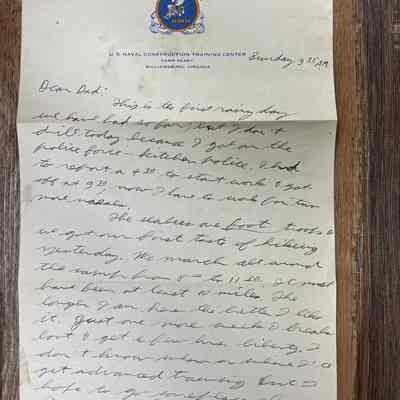 SEABEES
U.S. NAVAL CONSTRUCTION TRAINING CENTER
CAMP PEARY
WILLIAMSBURG, VIRGINIA
Sunday, 9 25 AM
Dear Dad:
This is the first rainy day
we have had so far, but I don't
drill today because I got on the
police force - kitchen police. I had
to report at 4 30 to start work & get
off at 9 30 now I have to work for two
more
The seabees are foot troops &
we got our first taste of hiking
yesterday. We march all around
the camp from 8 00 to 11 30. It must
have been at least 10 miles. The
longer I am here the better I like
it. Just one more week I
boot & get a few hrs. liberty. I
don't know when or where I'll
get advanced training but I
hope to go